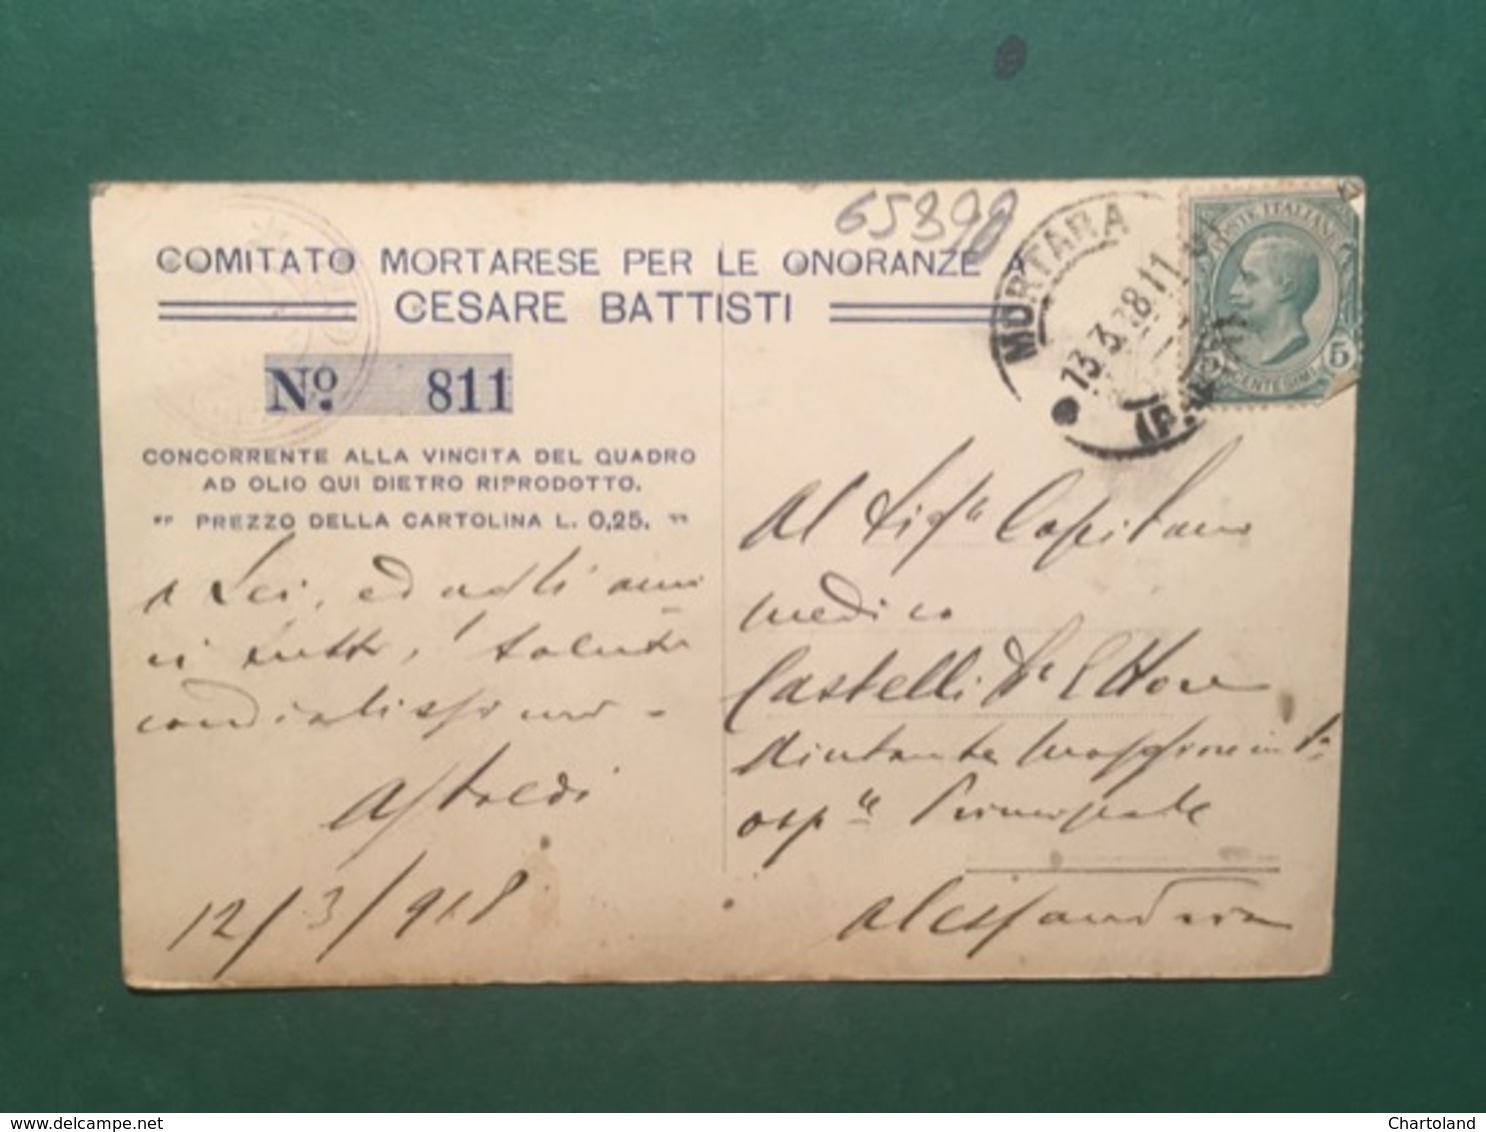 65390
COMITATO MORTARESE PER LE ONORANZE A
CESARE BATTISTI
Nº 811
CONCORRENTE ALLA VINCITA DEL QUADRO
AD OLIO QUI DIETRO RIPRODOTTO.
" PREZZO DELLA CARTOLINA L. 0,25. "
a Lei, ed agli ami
ci tutti, saluti
cordialissimi -
Astoldi
12/3/918
MORTARA
13.3.18.11
(PAVIA)
POSTE ITALIANE
CENTESIMI 5
Al Sigre Capitano
medico
Castelli Dr Ettore
Aiutante Maggiore in 1a
osple Principale
Alessandria
delcampe.net
Chartoland